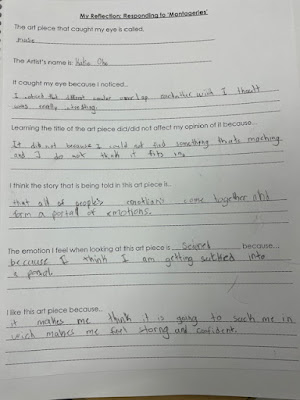 My Reflection: Responding to 'Mentageries'
The art piece that caught my eye is called,
The Artist's name is: Katie
It caught my eye because I noticed..
I noticed that different overlap wich I thought
was really intresting.
Learning the title of the art piece did/did not affect my opinion of it because...
It did not because I could not find something thats maching
and I do not think it fits
I think the story that is being told in this art piece is..
that all of people's emotions come together and
form a portal of emotions.
The emotion I feel when looking at this art piece is scared because...
because I think I am getting sucked into
a portal.
I like this art piece because..
it makes me think it is going to suck me in
wich makes me feel storng and confident.